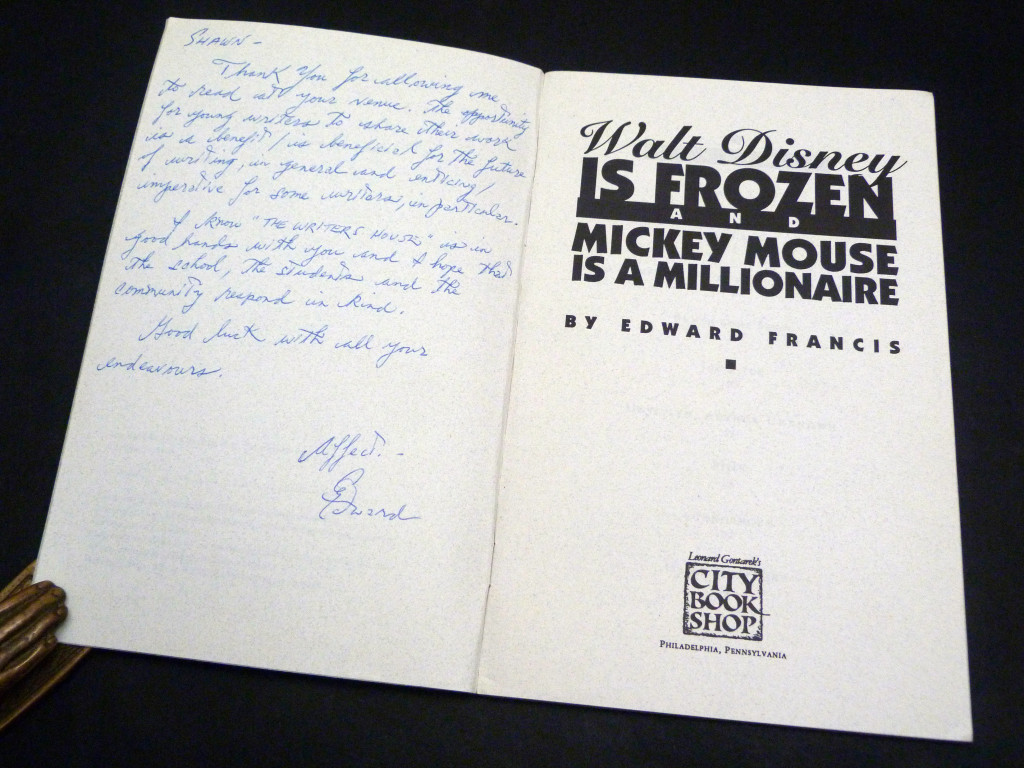 SHAWN –
Thank you for allowing me
to read at your venue. The opportunity
for young writers to share their work
is a benefit / is beneficial for the future
of writing, in general and enticing /
imperative for some writers, in particular.
I know "THE WRITERS HOUSE" is in
good hands with you and I hope that
the school, the students and the
community respond in kind.
Good luck with all your
endeavours.
Affect. –
Edward
Walt Disney
IS FROZEN
AND
MICKEY MOUSE
IS A MILLIONAIRE
BY EDWARD FRANCIS
Leonard Gontarek's
CITY
BOOK
SHOP
PHILADELPHIA, PENNSYLVANIA